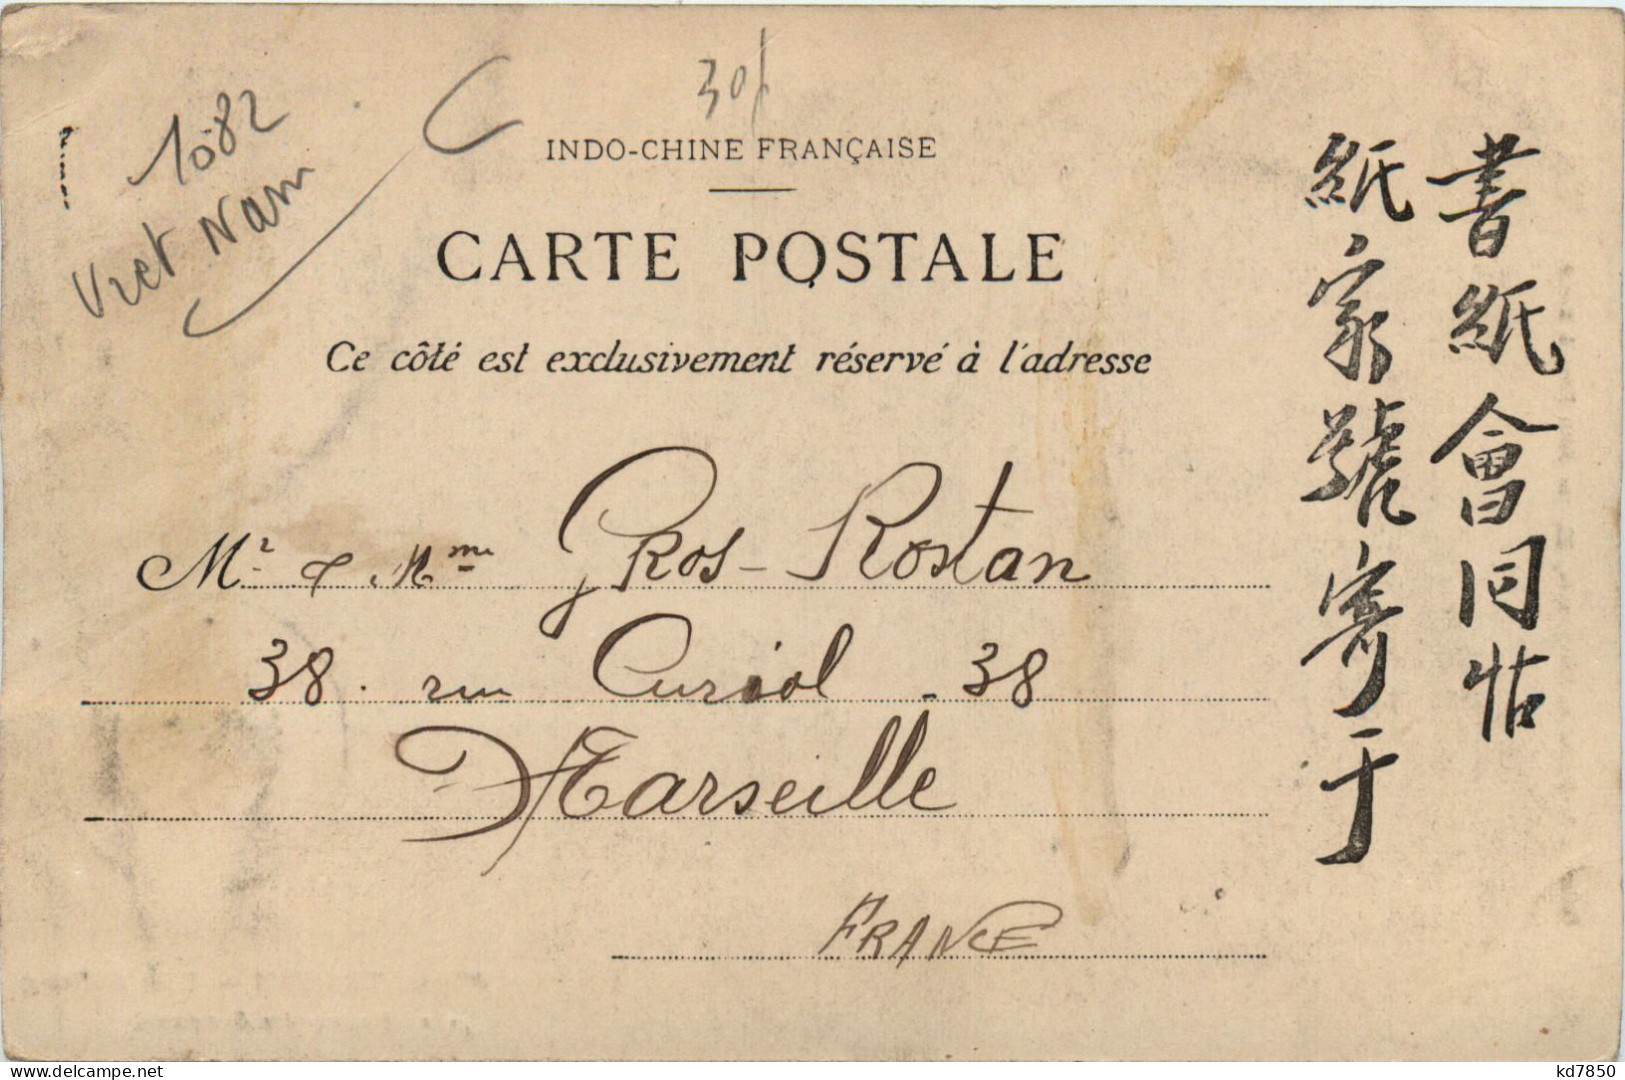 1082
Viet Nam
30f
INDO-CHINE FRANÇAISE
CARTE POSTALE
Ce côté est exclusivement réservé à l'adresse
Mr & Mme Gros-Rostan
38. rue Curiol - 38
Marseille
FRANCE
書紙會同帖
紙家號寄于
kd7850